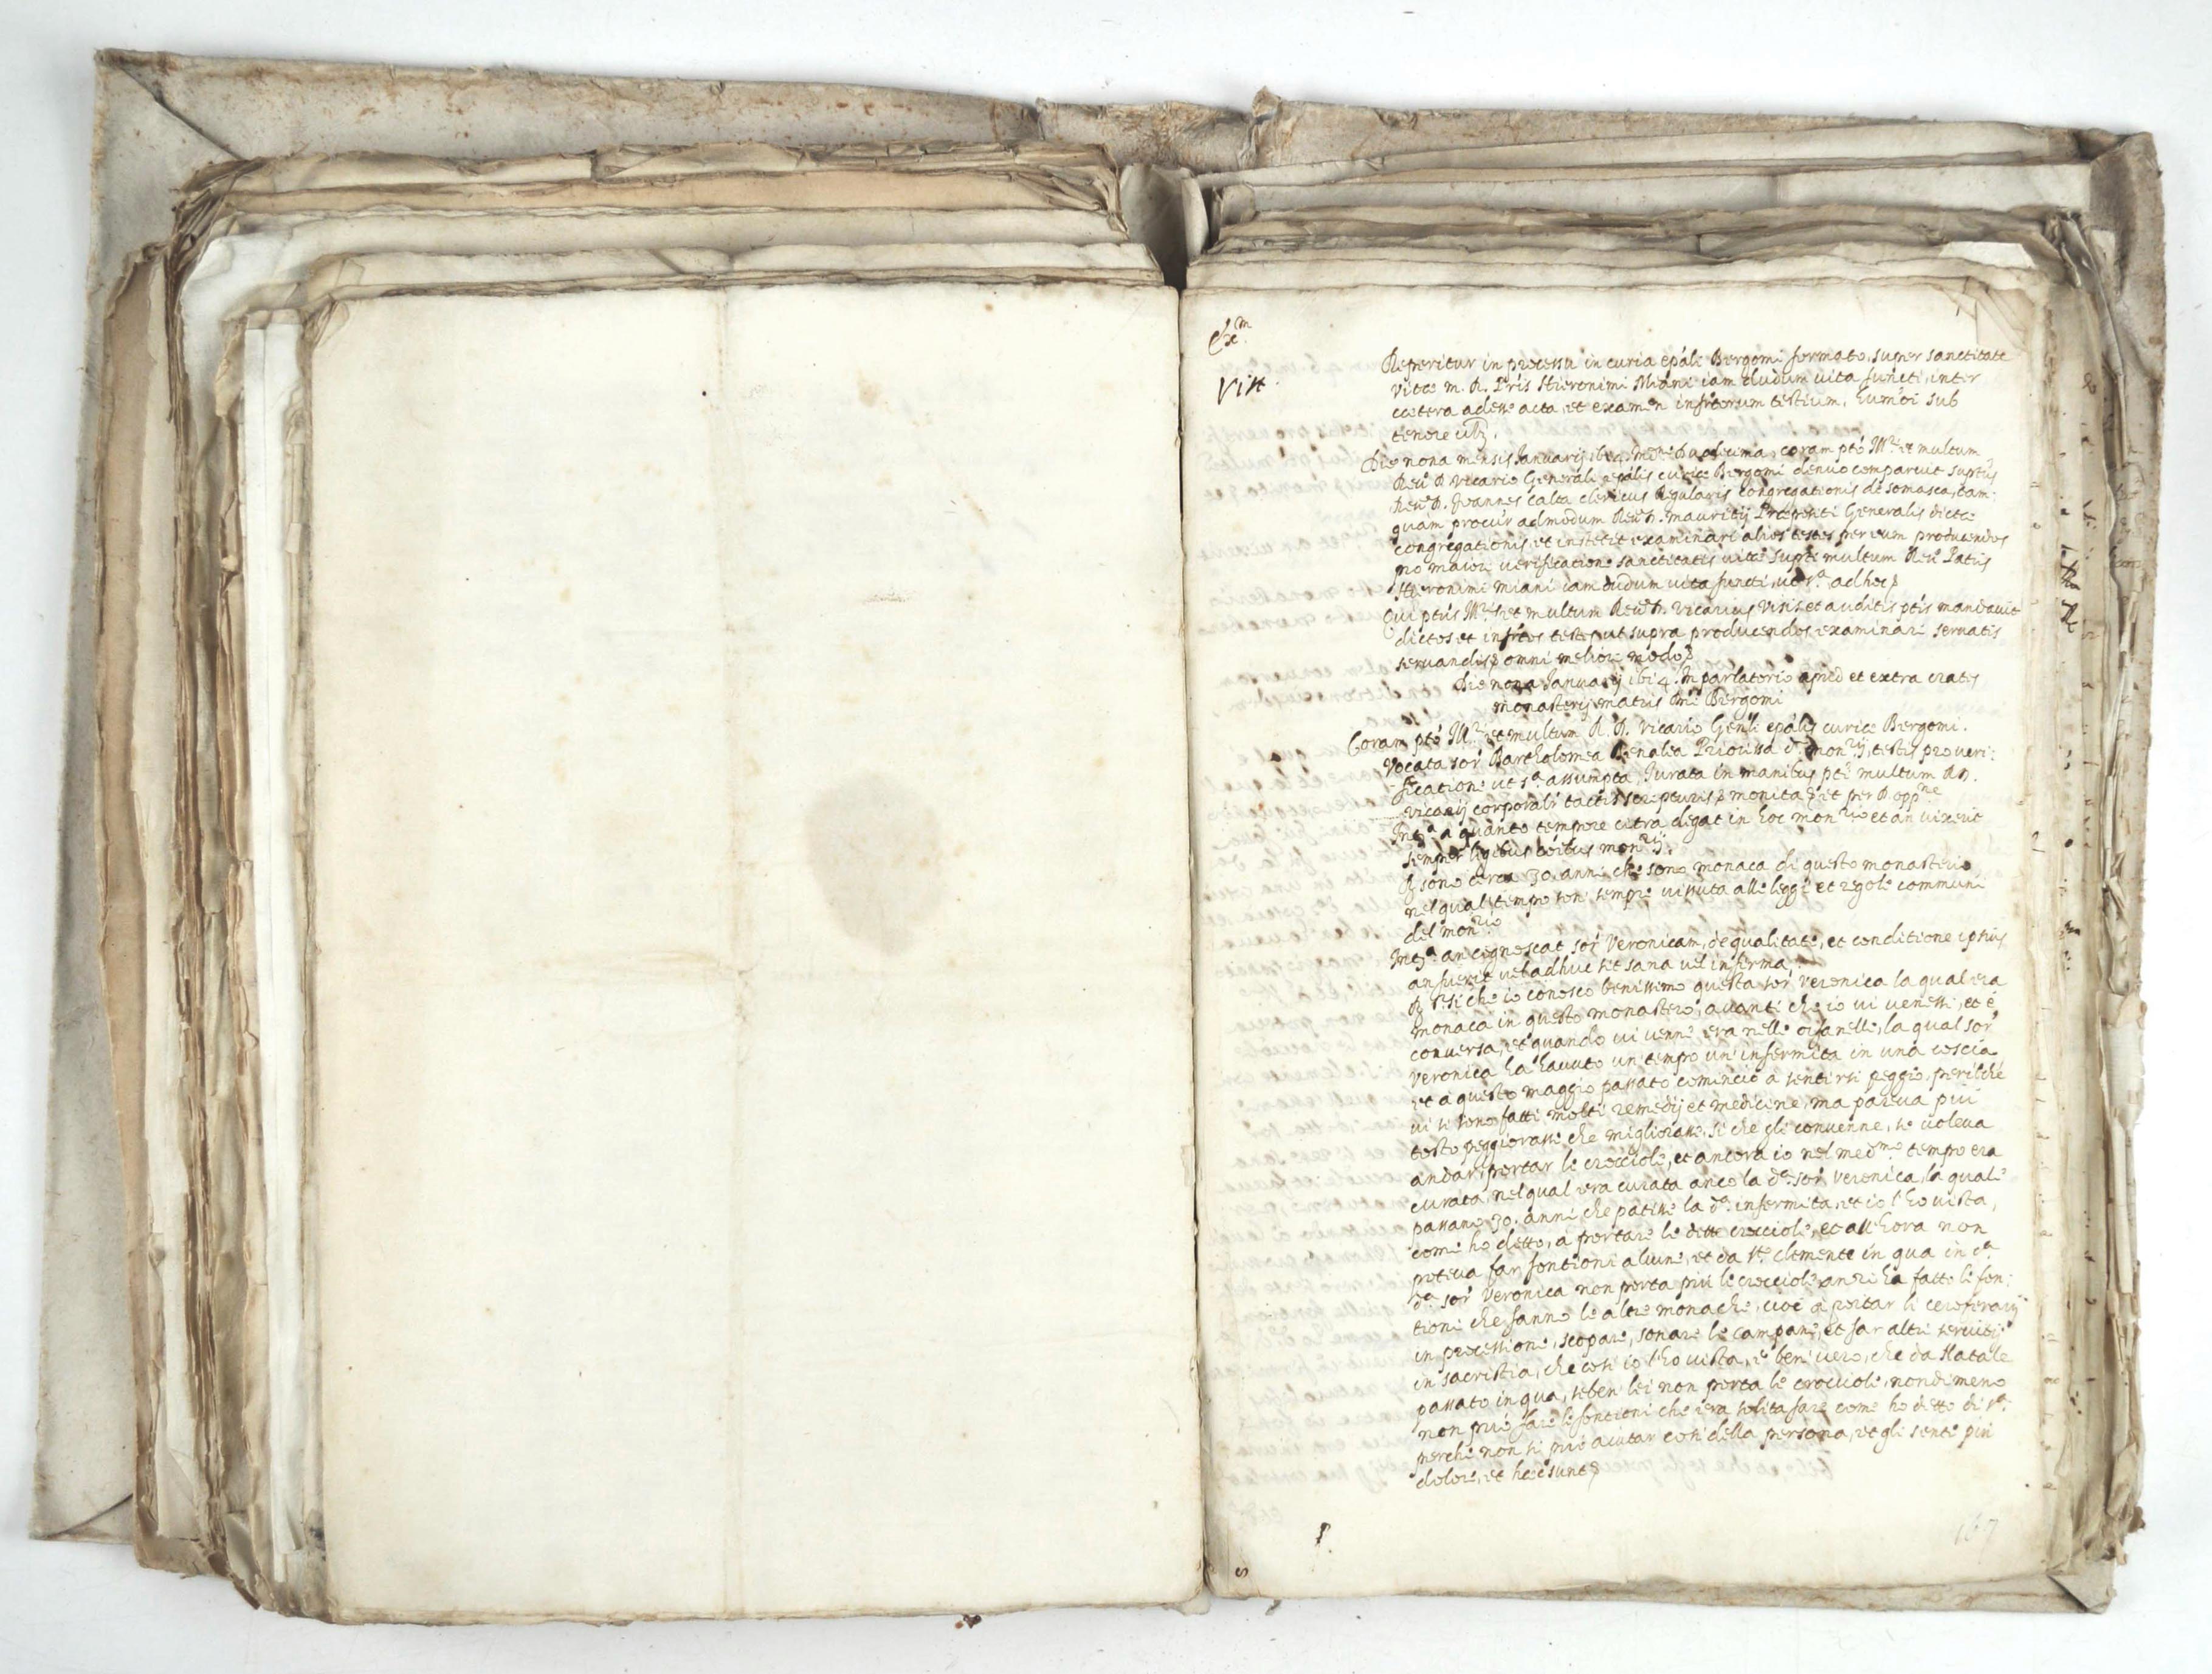 Ex.m
Vist
Reperitur in processu in curia epáli Bergomi formato, super sanctitate
vitæ m. R. Pris Hieronimi Miani iam dudum vita functi, inter
cætera adesse acta, et examen infrtorum testium, humoi sub
tenore
Die nona mensis Januarij 1614 Duodecima, coram pto Mri et multum
Reu.D. Vicario Generali epális curiæ Bergomi denuo comparuit suprtus
Reu.D. Joannes Calta clericus Regularis congregationis de somasca, tam:
quam procur admodum Reu.D. mauritij Præpositi Generalis dictæ
congregationis, et instetit examinari alios testes per eum producendos
pro maiori verificatione sanctitatis vitæ supti multum Reu. Patris
Hieronimi Miani iam dudum vita functi, ut s.a ad hoc
Qui ptus Mris et multum Reu.D. Vicarius visis et auditis ptis mandauit
dictos et infrtos testes ut supra producendos examinari seruatis
seruandis omni meliori modo
Die nona Januarij 1614. In parlatorio apud et extra crates
monasterij matris Dni Bergomi
Coram pto Mri et multum R.D. Vicario Genli epális curiæ Bergomi.
Vocata sor Bartholomea Benalea Priorissa d.i monrij, testis pro veri:
ficatione ut s.a assumpta, Jurata in manibus pti multum R.D.
vicarij corporalr tactis scripturis monita et per D. oppne
Intta a quanto tempore citra degat in hoc monrio et an vixerit
semper legibus coibus monrij.
R. sono circa 30. anni che sono monaca di questo monasterio,
nel qual tempo son sempre vissuta alle leggi et regole communi
del monrio
Intta an cognoscat sor Veronicam, de qualitate, et conditione ipsius
an fuerit vel adhuc sit sana vel infirma,
R. sì che io conosco benissimo questa sor Veronica la qual era
monaca in questo monastero, avanti che io vi venessi, et è
conversa, et quando vi venni era nelle, la qual sor
Veronica ha havuto un tempo un' infermità in una coscia
et a questo maggio passato cominciò a sentirsi peggio, perilche
vi si sono fatti molti remedij et medicine, ma pareva piu
tosto peggiorasse che migliorasse, si che gli convenne, se voleva
andar portar le crocciole, et ancora io nel medmo tempo era
curata, nel qual era curata anco la d.a sor Veronica, la quale
passano 30. anni che patisse la d.a infermità, et io l'ho vista,
come ho detto, a portare le dette crocciole, et all'hora non
poteva far fontioni alcune, et da s.to Clemente in qua in c.a
d.a sor Veronica non porta piu le crocciole anzi ha fatto le fon:
tioni che fanno le altre monache, cioè a portar li ceroferarij
in processione, scopare, sonare le campane, et far altri servitij
in sacristia, che così io l'ho vista, è ben vero, che da Natale
passato in qua, seben lei non porta le crocciole, nondimeno
non può fare le fontioni che era solita fare come ho detto di s.a
perche non si può aiutar così della persona, et gli sente piu
dolori, et hæc sunt
167